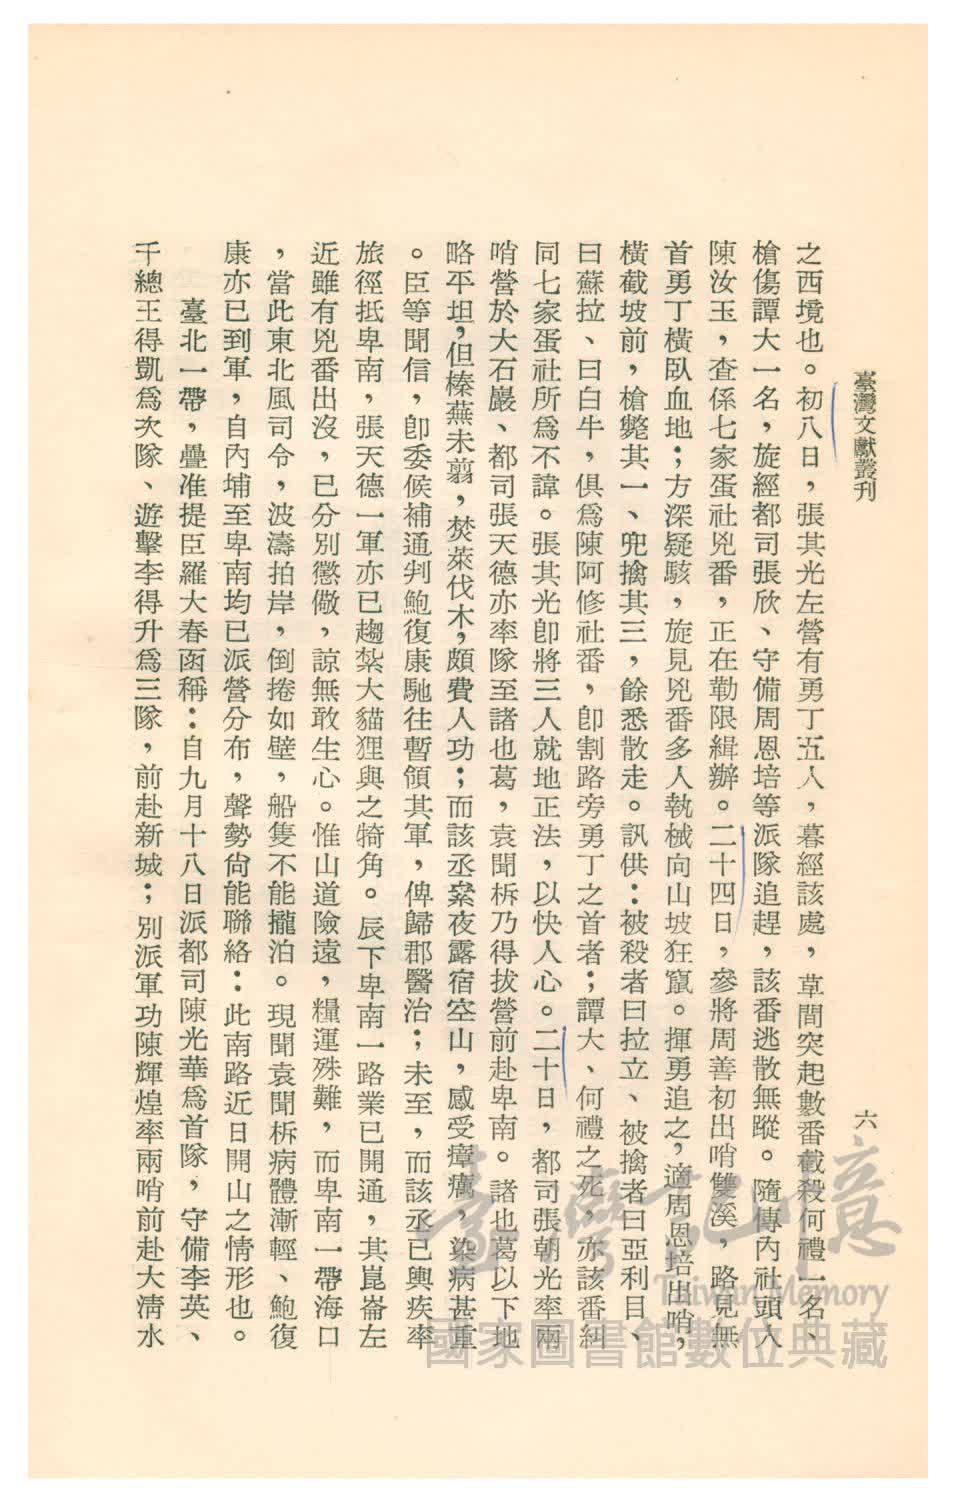 臺灣文獻叢刊
六
之西境也。初八日，張其光左營有勇丁五人，暮經該處，草間突起數番截殺何禮一名、
槍傷譚大一名，旋經都司張欣、守備周恩培等派隊追趕，該番逃散無蹤。隨傳內社頭人
陳汝玉，查係七家蛋社兇番，正在勒限緝辦。二十四日，參將周善初出哨雙溪，路見無
首勇丁橫臥血地；方深疑駭，旋見兇番多人執械向山坡狂竄。揮勇追之，適周恩培出哨，
橫截坡前，槍斃其一、兜擒其三，餘悉散走。訊供：被殺者曰拉立、被擒者曰亞利目、
曰蘇拉、曰白牛，俱爲陳阿修社番，卽割路旁勇丁之首者；譚大、何禮之死，亦該番糾
同七家蛋社所爲不諱。張其光卽將三人就地正法，以快人心。二十日，都司張朝光率兩
哨營於大石巖、都司張天德亦率隊至諸也葛，袁聞柝乃得拔營前赴卑南。諸也葛以下地
略平坦，但榛蕪未翦，焚萊伐木，頗費人功；而該丞案夜露宿空山，感受瘴癘，染病甚重
。臣等聞信，卽委候補通判鮑復康馳往暫領其軍，俾歸郡醫治；未至，而該丞已輿疾率
旅徑抵卑南，張天德一軍亦已趨紮大貓狸與之犄角。辰下卑南一路業已開通，其崑崙左
近雖有兇番出沒，已分別懲儆，諒無敢生心。惟山道險遠，糧運殊難，而卑南一帶海口
，當此東北風司令，波濤拍岸，倒捲如壁，船隻不能攏泊。現聞袁聞柝病體漸輕、鮑復
康亦已到軍，自內埔至卑南均已派營分布，聲勢尙能聯絡：此南路近日開山之情形也。
臺北一帶，疊准提臣羅大春函稱：自九月十八日派都司陳光華爲首隊，守備李英、
千總王得凱爲次隊、遊擊李得升爲三隊，前赴新城；別派軍功陳輝煌率兩哨前赴大清水
臺灣記憶
Taiwan Memory
國家圖書館數位典藏